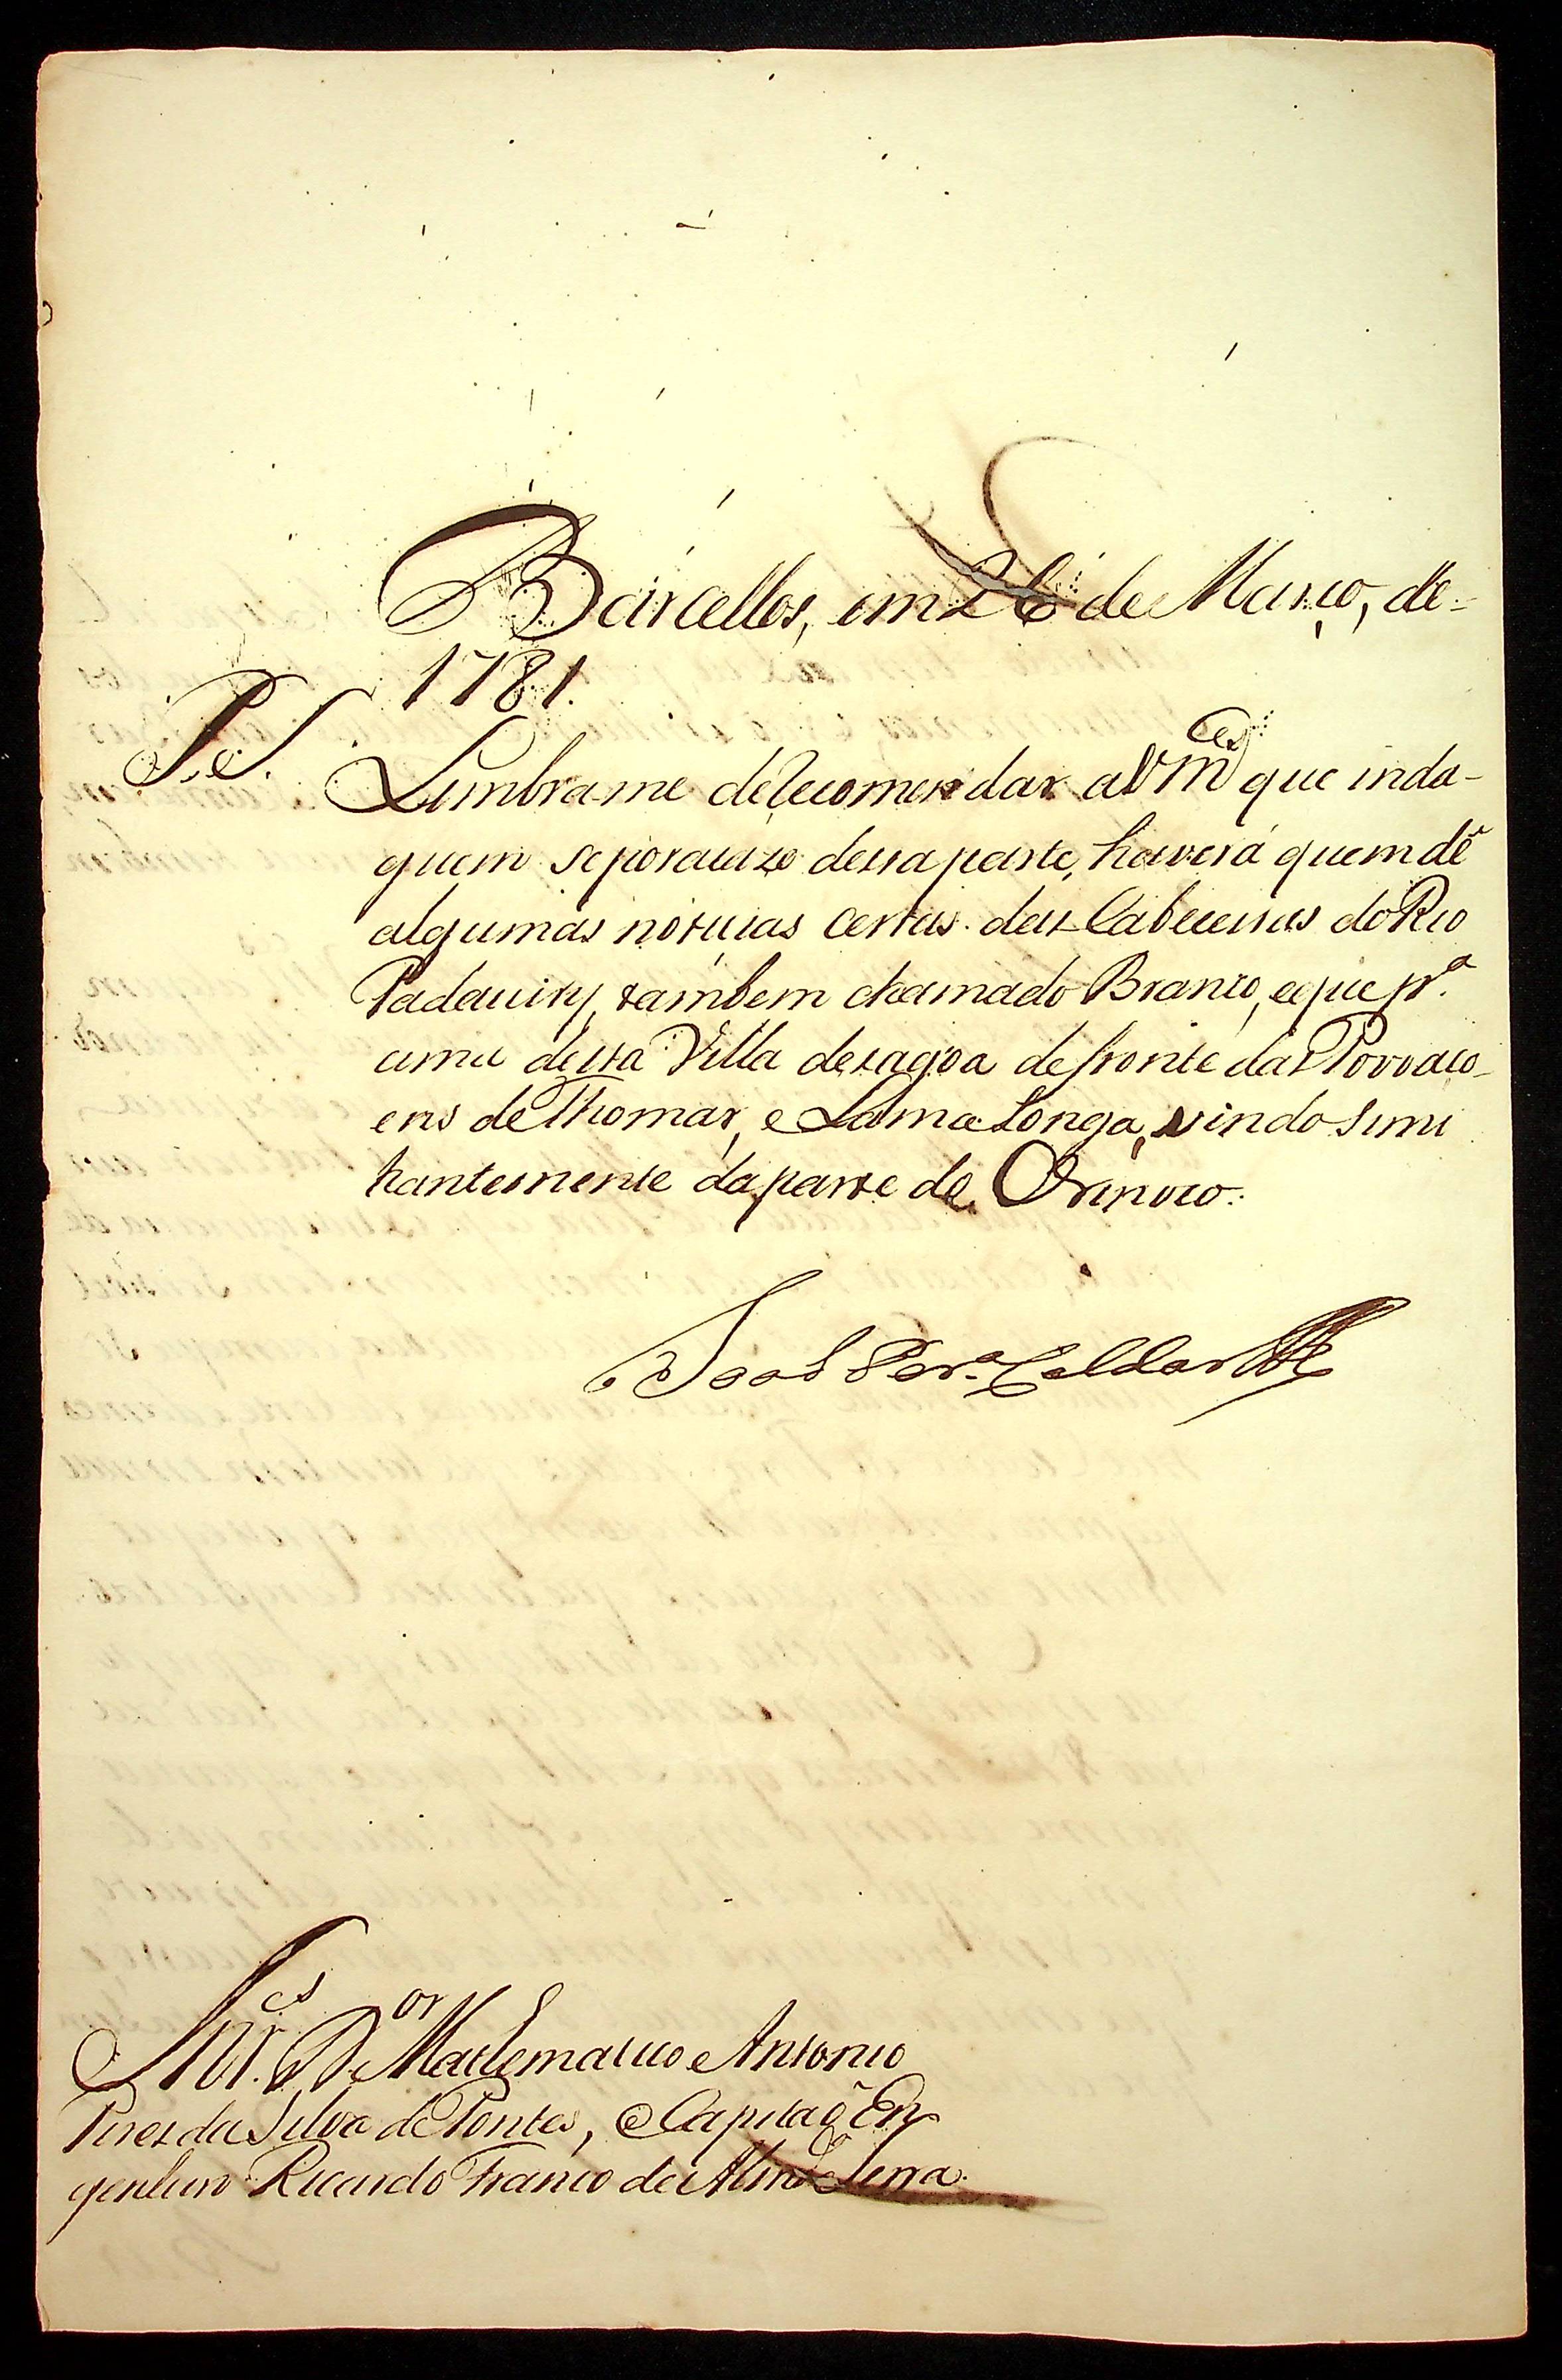 Barcellos, em 26 de Março, de=
1781.
P.S. Lembra-me de recomendar a Vm.ces que inda-
guem se por acazo dessa parte, haverá quem dê
algumas noticias certas das Cabeceiras do Rio
Padauiry, tambem chamado Branco, e que p.ª
cima desta Villa desagoa defronte das Povoaço-
ens de Thomar, e LamaLonga, vindo simi
hantemente da parte de Orinoco.
João Per.ª Caldas
Snr.es D.or Mathematico Antonio
Pires da Silva de Pontes, e Capitaõ En
genheiro Ricardo Franco de Alm.da Serra.